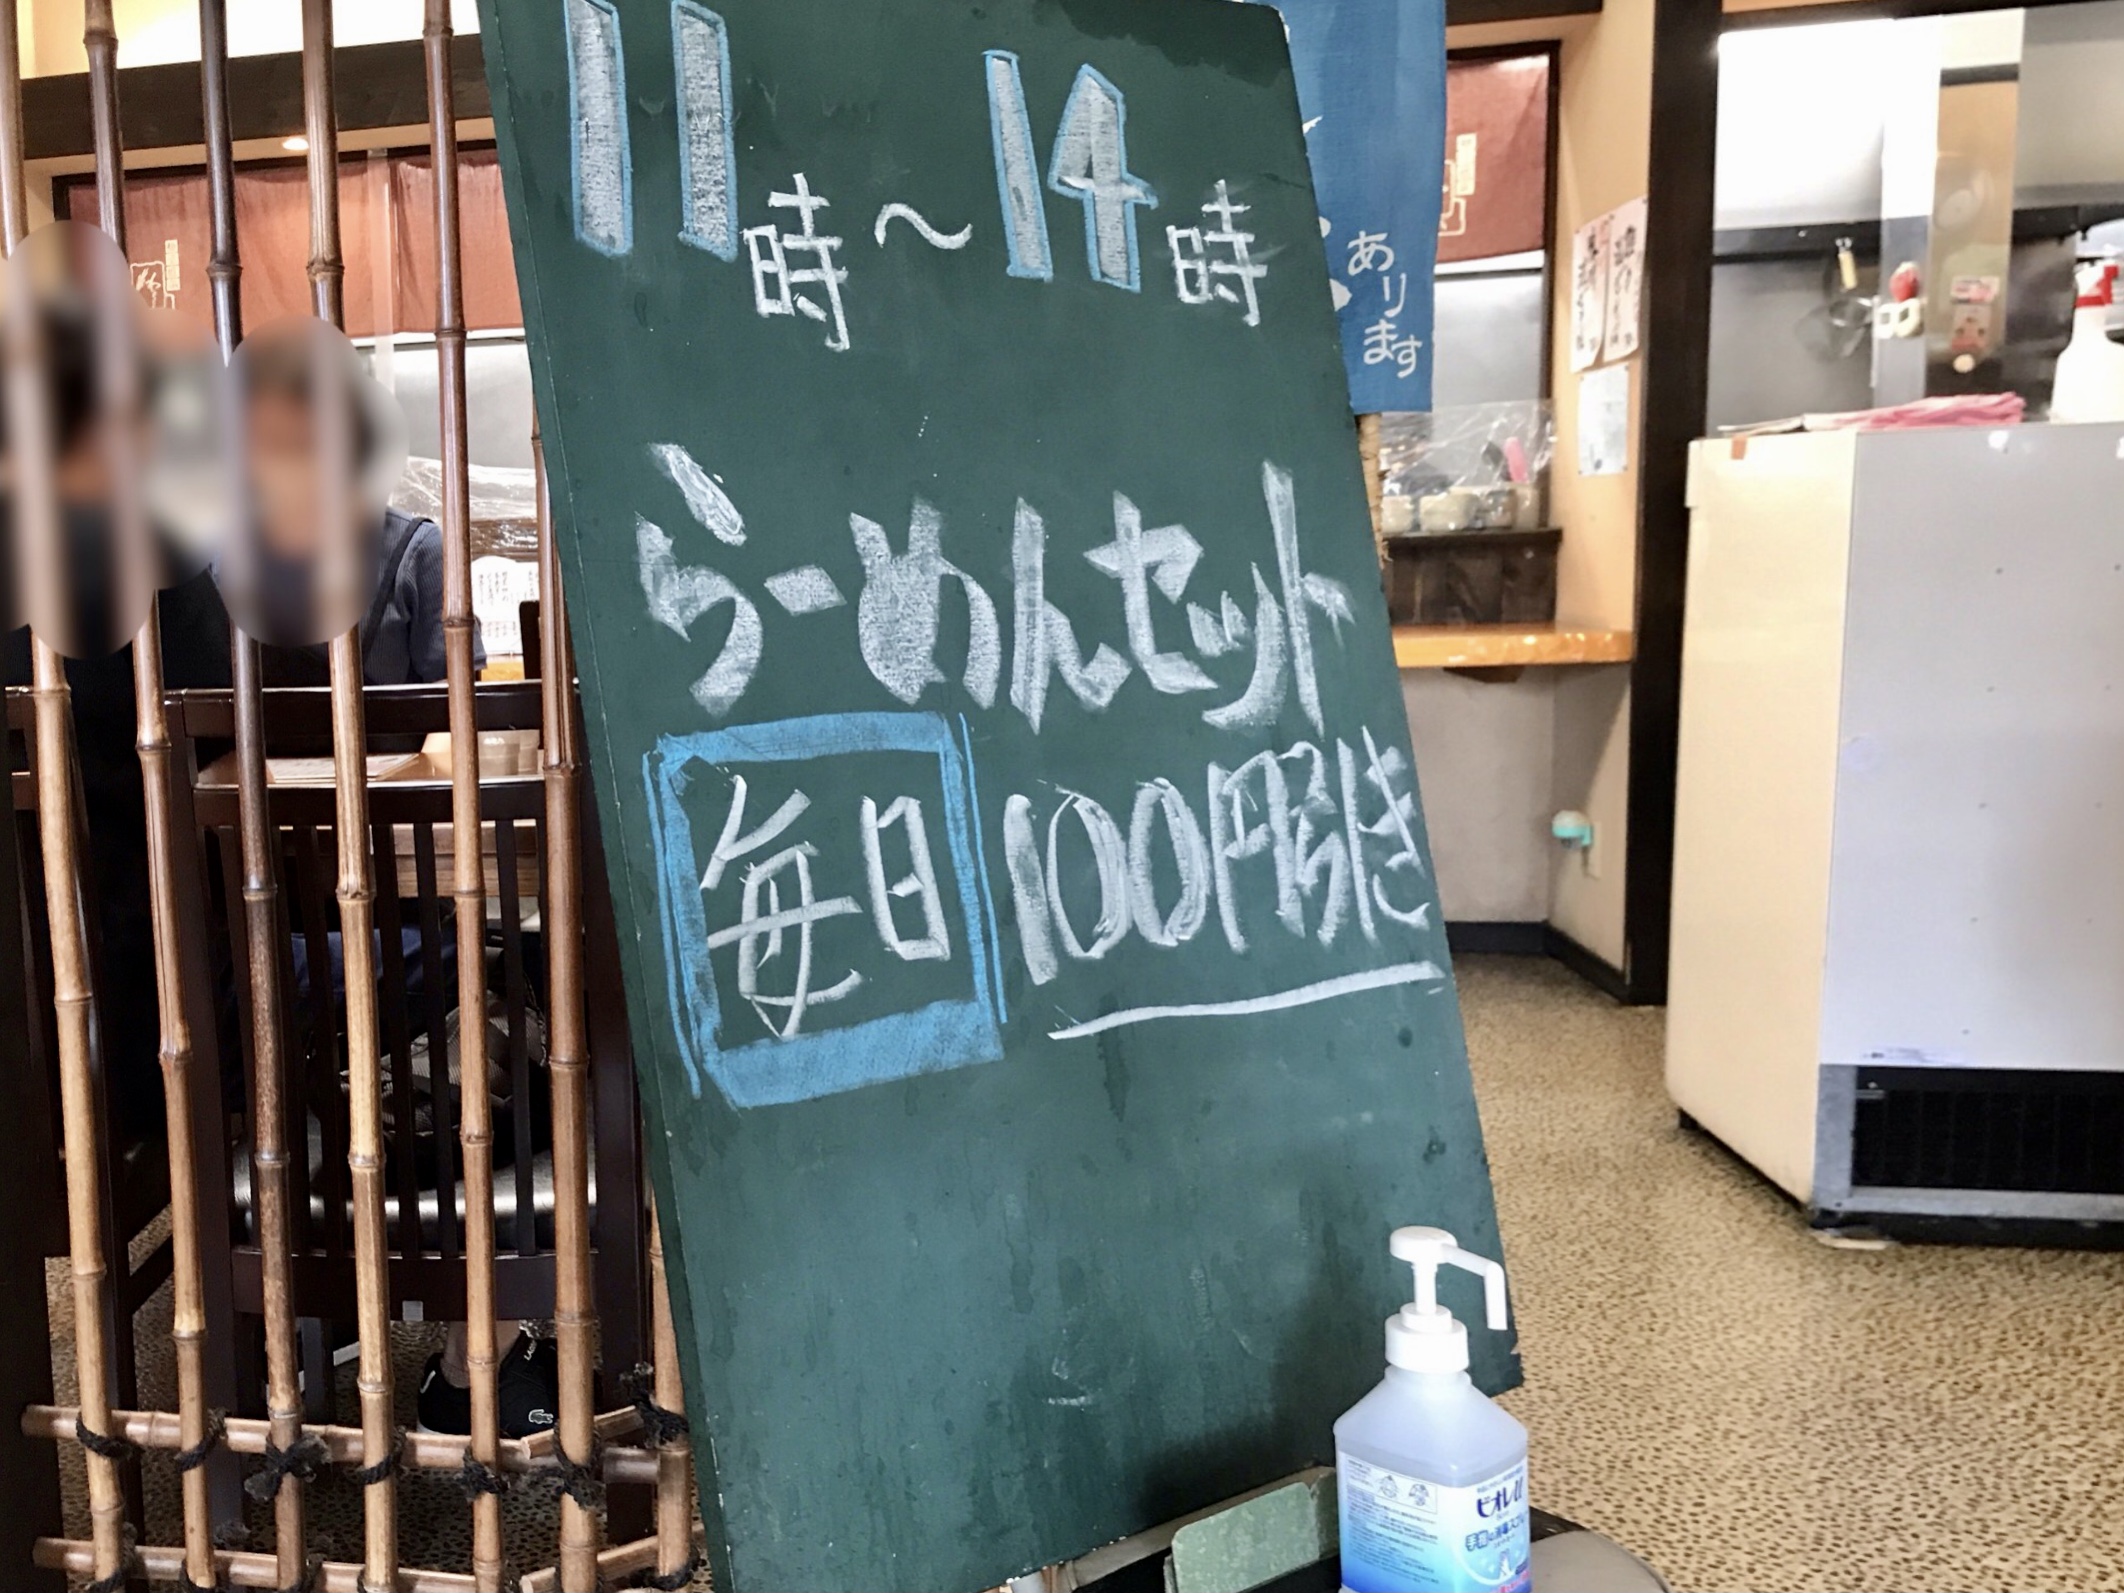 11時〜14時
らーめんセット
毎日 100円引き
あります
ビオレu
手指の消毒スプレー